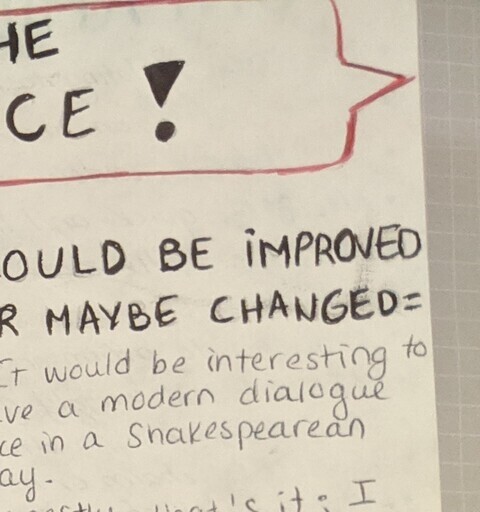 HE
CE !
OULD BE iMPROVED
R MAYBE CHANGED=
It would be interesting to
ve a modern dialogue
ce in a Shakespearean
ay.
that's it: I